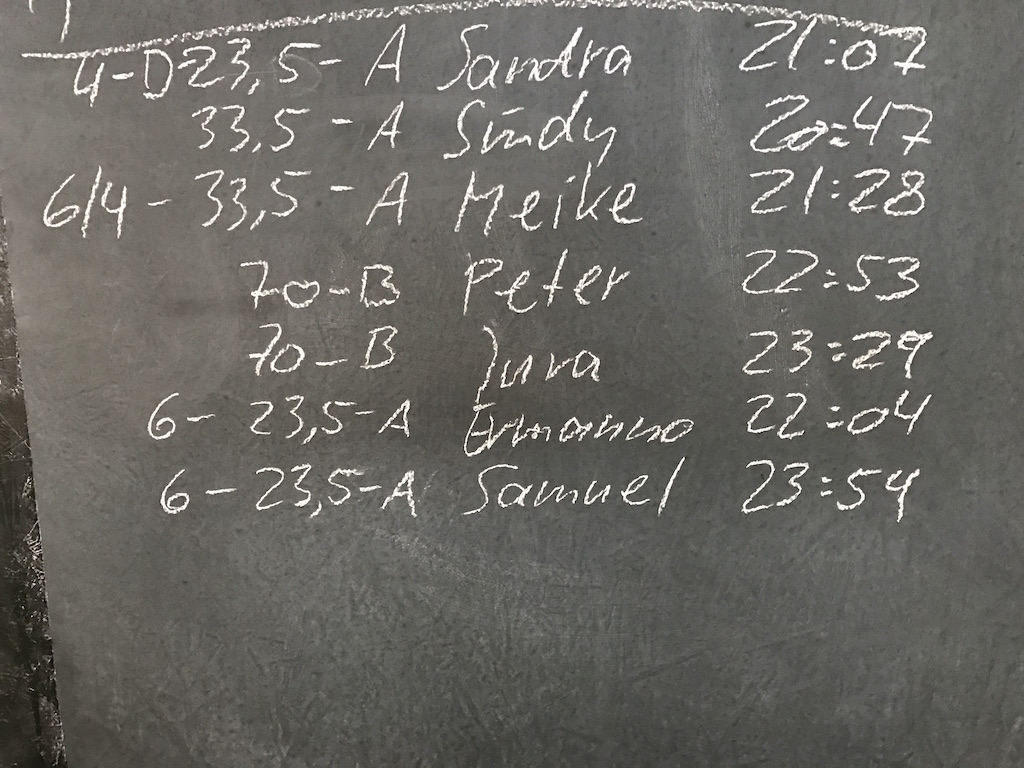 4-D-23,5 - A Sandra 21:07
33,5 - A Sindy 20:47
6/4 - 33,5 - A Meike 21:28
70-B Peter 22:53
70-B Jura 23:29
6- 23,5-A Ermanno 22:04
6- 23,5-A Samuel 23:54